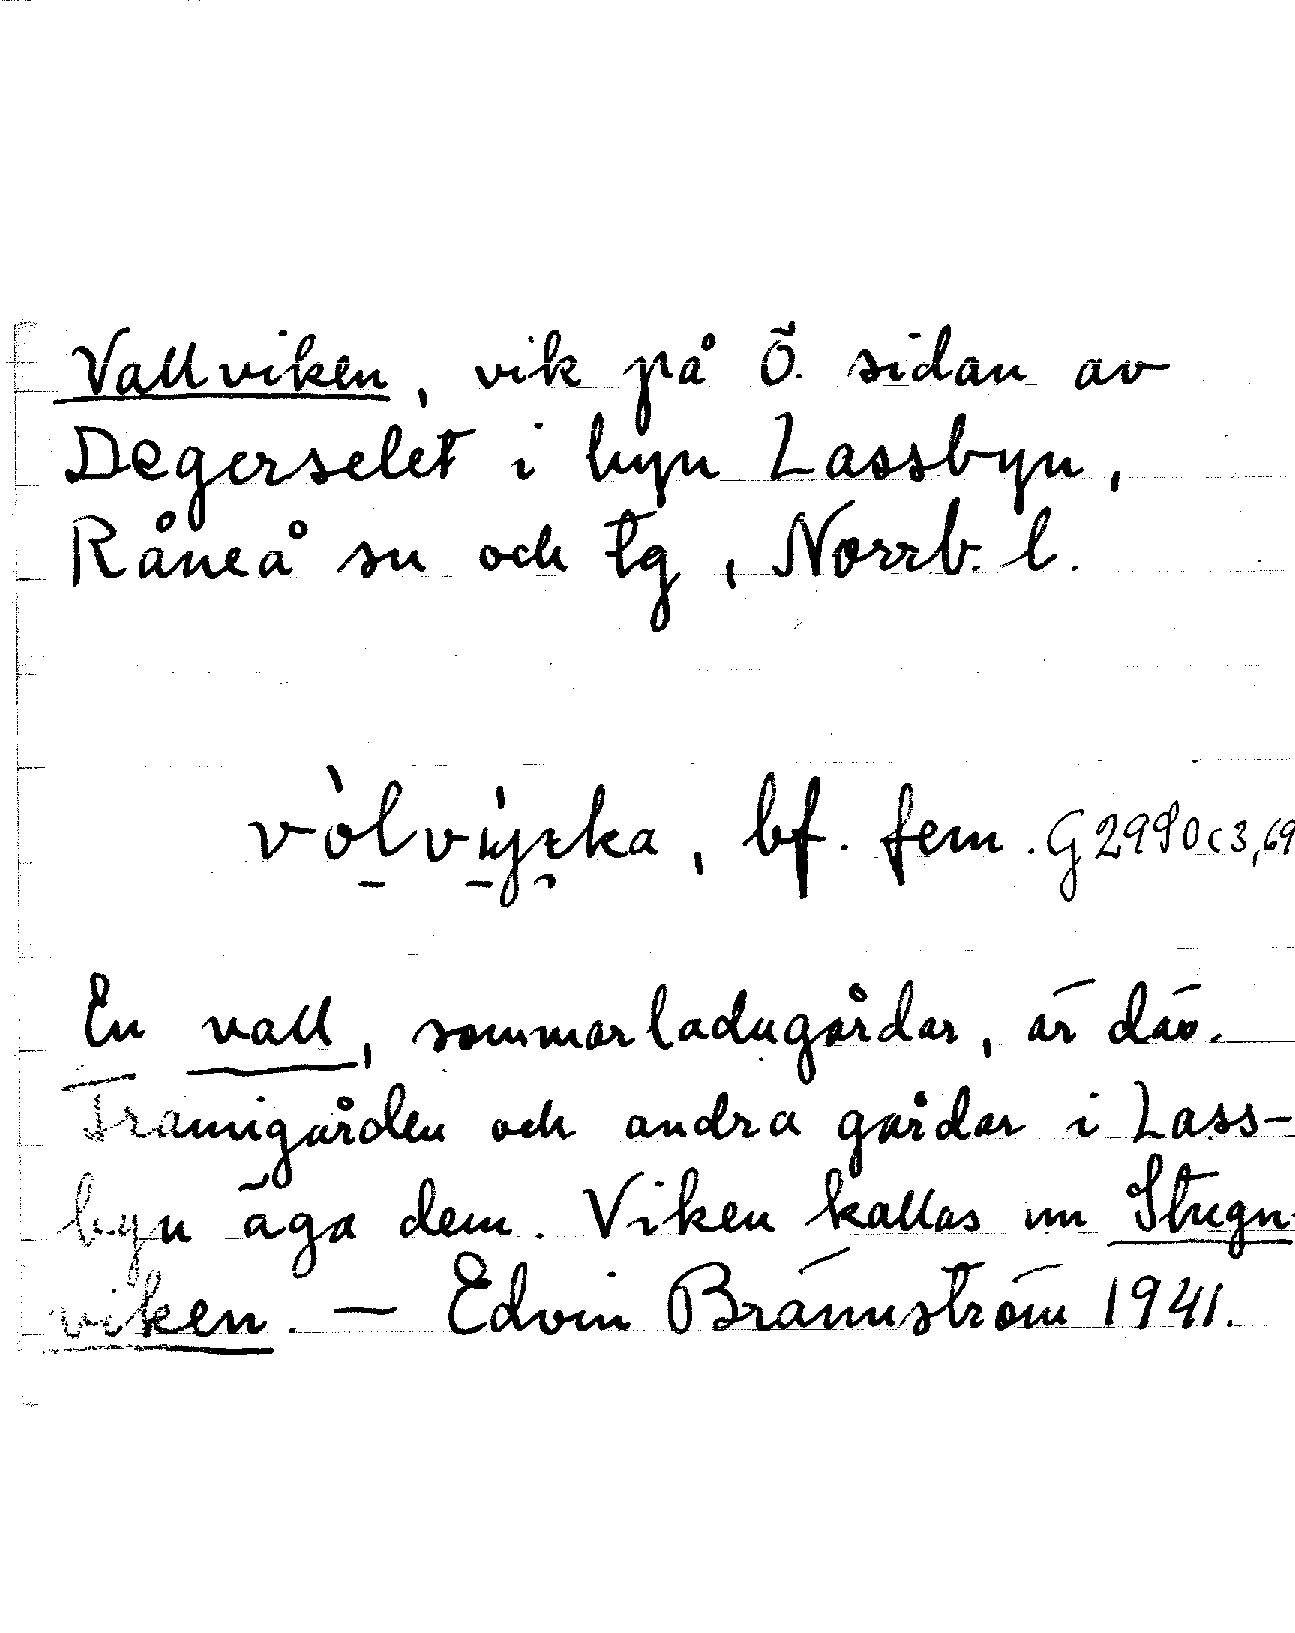 Vallviken, vik på Ö. sidan av
Degerselet i byn Lassbyn,
Råneå sn och tg, Norrb. l.
bf. fem.
En vall, sommarladugårdar, är där.
och andra gårdar i Lass-
byn äga dem. Viken kallas nu Stugu-
viken. — Edvin Brännström 1941.